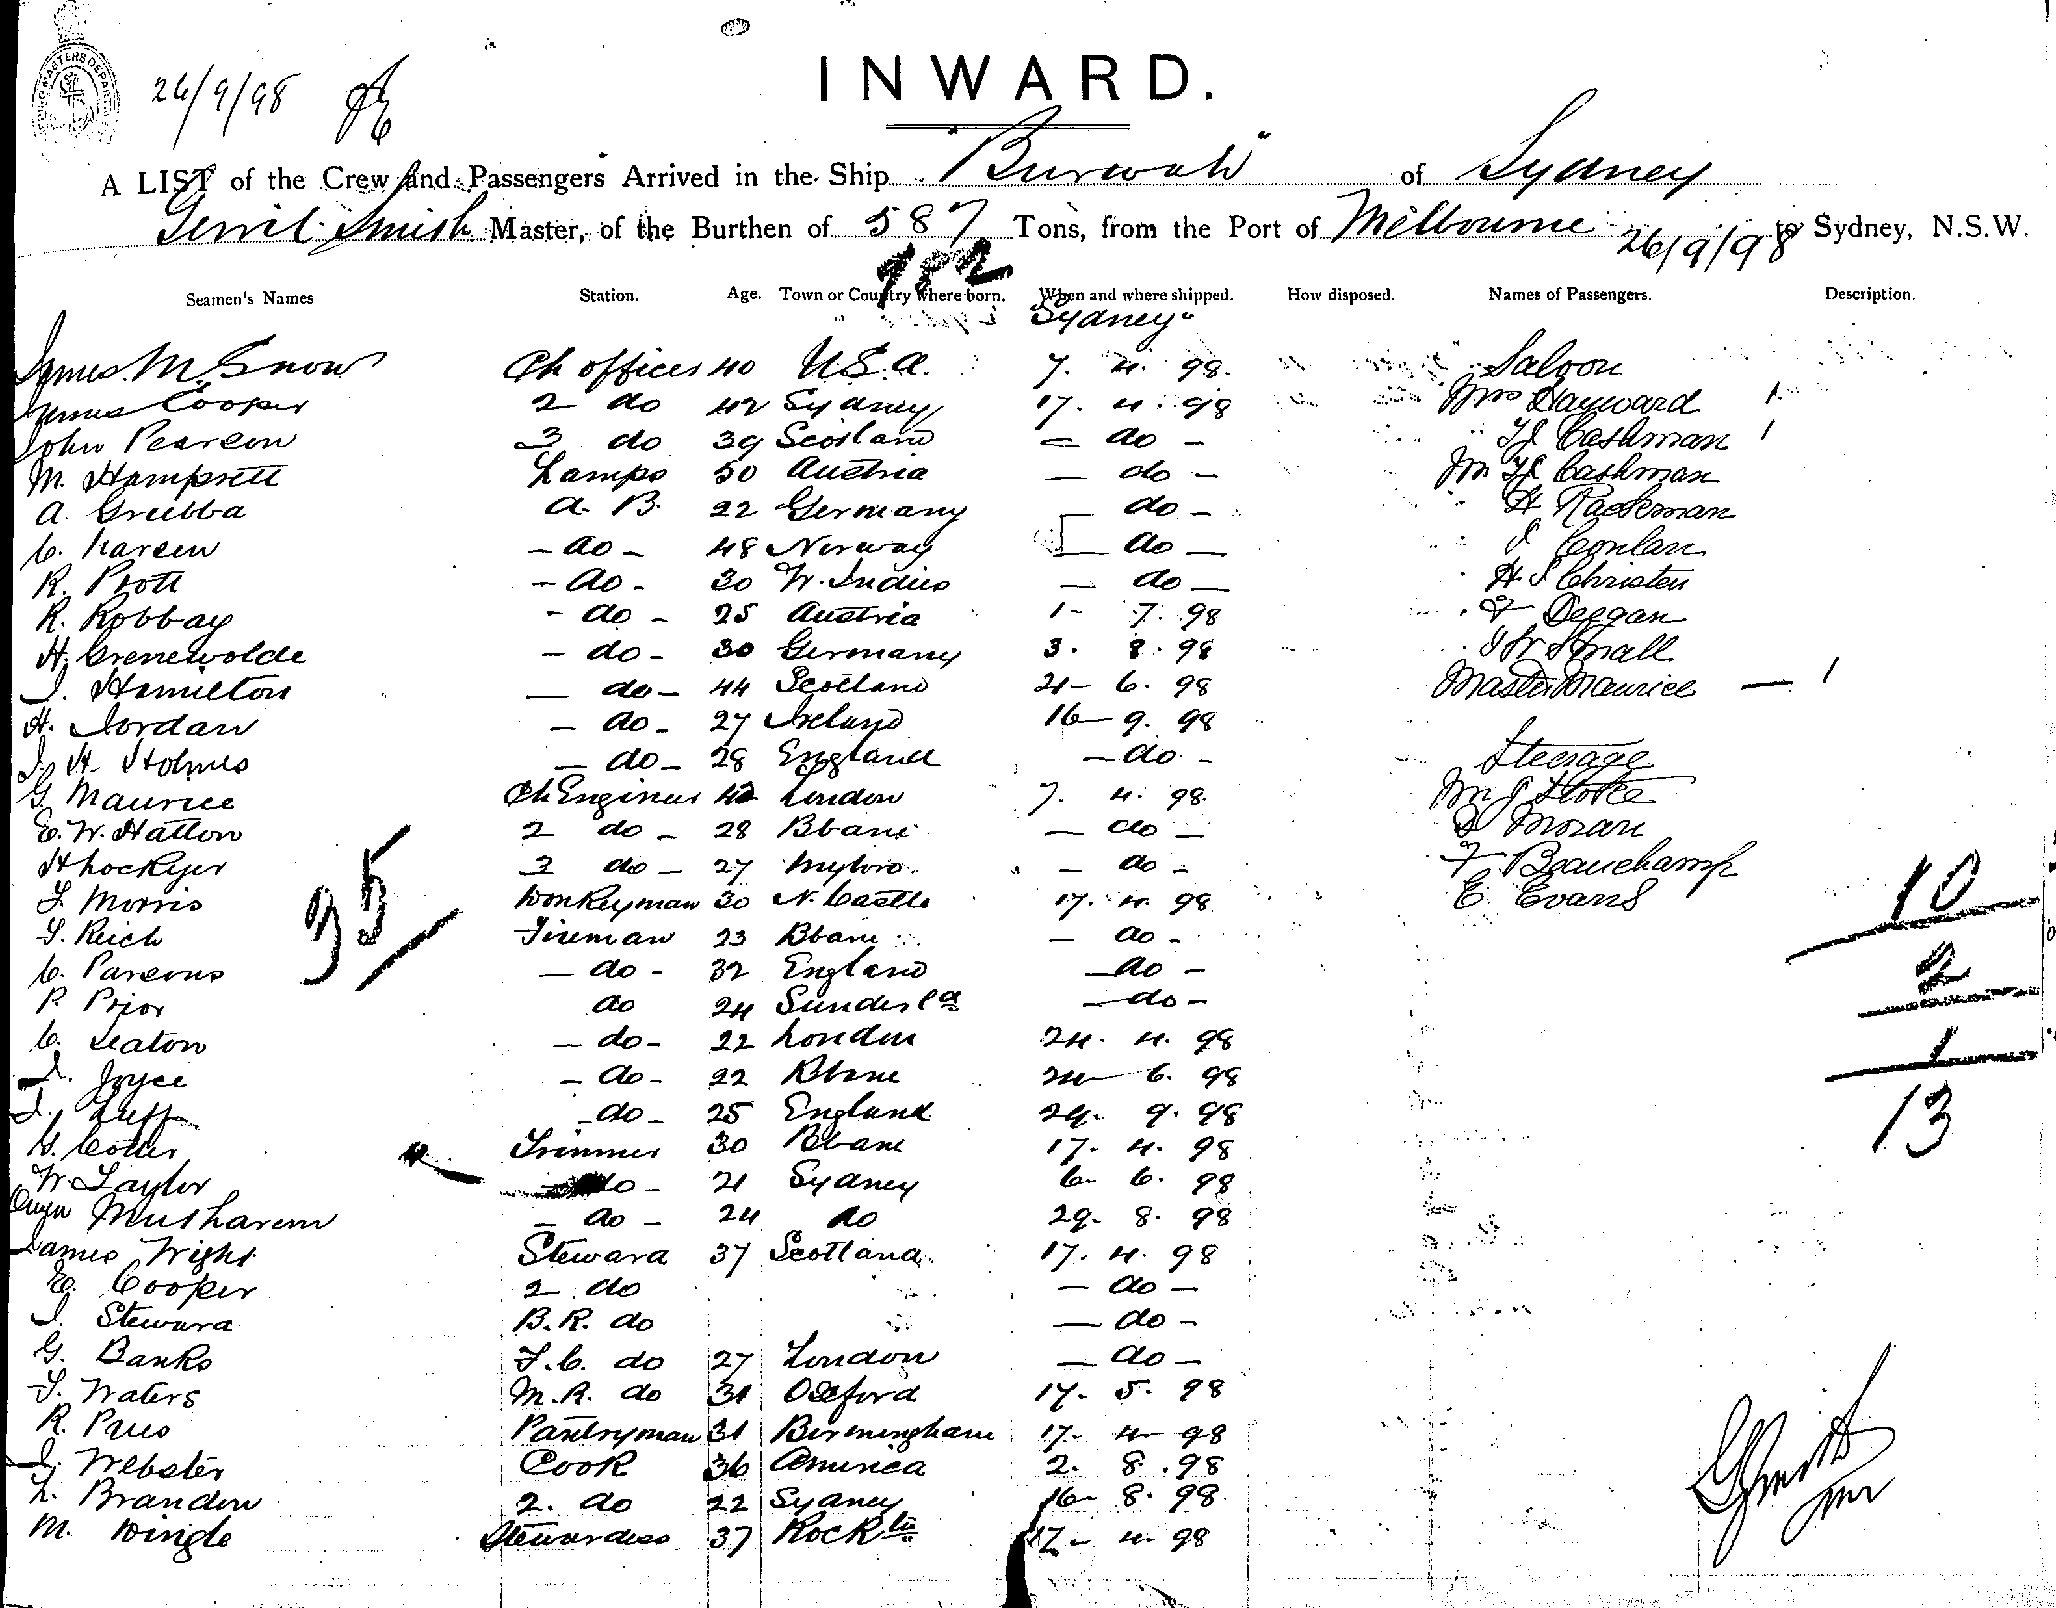 26/9/98
INWARD.
A LIST of the Crew and Passengers Arrived in the Ship "Burwah" of Sydney
Gerrit Smith Master, of the Burthen of 587 Tons, from the Port of Melbourne 26/9/98 to Sydney, N.S.W.
982
Seamen's Names Station. Age. Town or Country where born. When and where shipped. How disposed. Names of Passengers. Description.
Sydney
James M. Snow Ch officer 40 U.S.A. 7. 4. 98. Saloon
James Cooper 2 do 42 Sydney 17. 4. 98 Mrs Hayward 1
John Pearson 3 do 39 Scotland - do - " Cashman 1
M. Hamprett Lamps 50 Austria - do - Mr Cashman
A. Grubba A. B. 22 Germany - do - H
C. Karsen - do - 48 Norway - do - Conlan
R. Prott - do - 30 W. Indies - do - H. S Christen
R. Robbay - do - 25 Austria 1 - 7. 98 F Deegan
H. Grenewolde - do - 30 Germany 3. 8. 98 J W Small
J. Hamilton - do - 44 Scotland 21 - 6. 98 Master Maurice - 1
H. Jordan - do - 27 Ireland 16 - 9. 98
J. H. Holmes - do - 28 England - do - Steerage
G. Maurice Ch Engineer 42 London 7. 4. 98. Mr J Stoke
E. W. Hatton 2 do - 28 Bbane - do - Moran
H Lockyer 3 do - 27 Mybro. - do - F Beauchamp
T. Morris Donkeyman 30 N. Castle 17. 4. 98 E. Evans
10
35
T. Reich Fireman 23 Bbane - do -
C. Parsons - do - 32 England - do -
2
P. Prior do 24 Sunderld - do -
C. Seaton - do - 22 London 24. 4. 98
1
J. Joyce - do - 22 Bbane 24 - 6. 98
J. Luff - do - 25 England 29. 9. 98
13
G. Cotter Trimmer 30 Bbane 17. 4. 98
W. Taylor - do - 21 Sydney 6 - 6. 98
Musharem - do - 24 do 29 - 8. 98
James Wight Steward 37 Scotland 17. 4. 98
E. Cooper 2 do - do -
J. Steward B.R. do - do -
G. Banks F.C. do 27 London - do -
T. Waters M.R. do 31 Oxford 17 - 5. 98
R. Pries Pantryman 31 Birmingham 17 - 4 - 98
J. Webster Cook 36 America 2. 8. 98
L. Brandon 2. do 22 Sydney 16 - 8. 98
M. Dingle Stewardess 37 Rockton 17 - 4. 98
G Smith